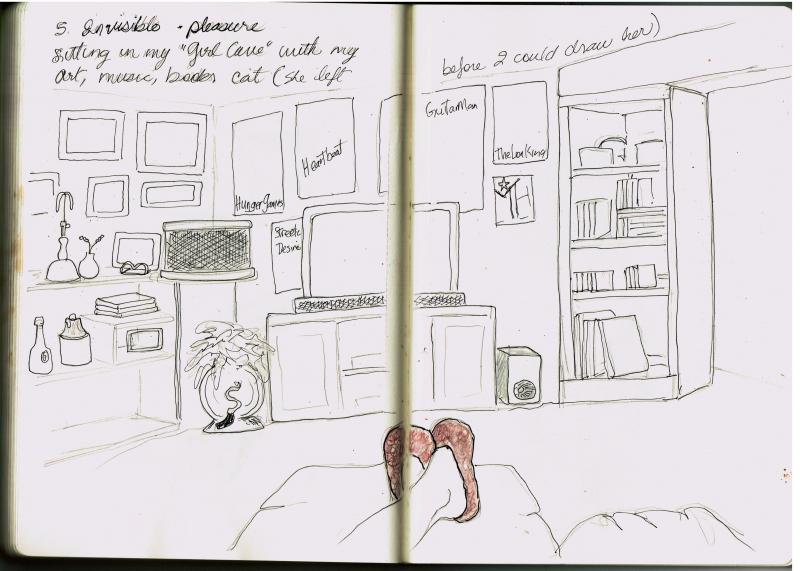 5. Invisible - pleasure
Sitting in my "Girl Cave" with my
art, music, books cat (she left
before I could draw her)
GuitarMan
Heartbeat
The Lou King
Hunger Games
Streetc
Desire
TH